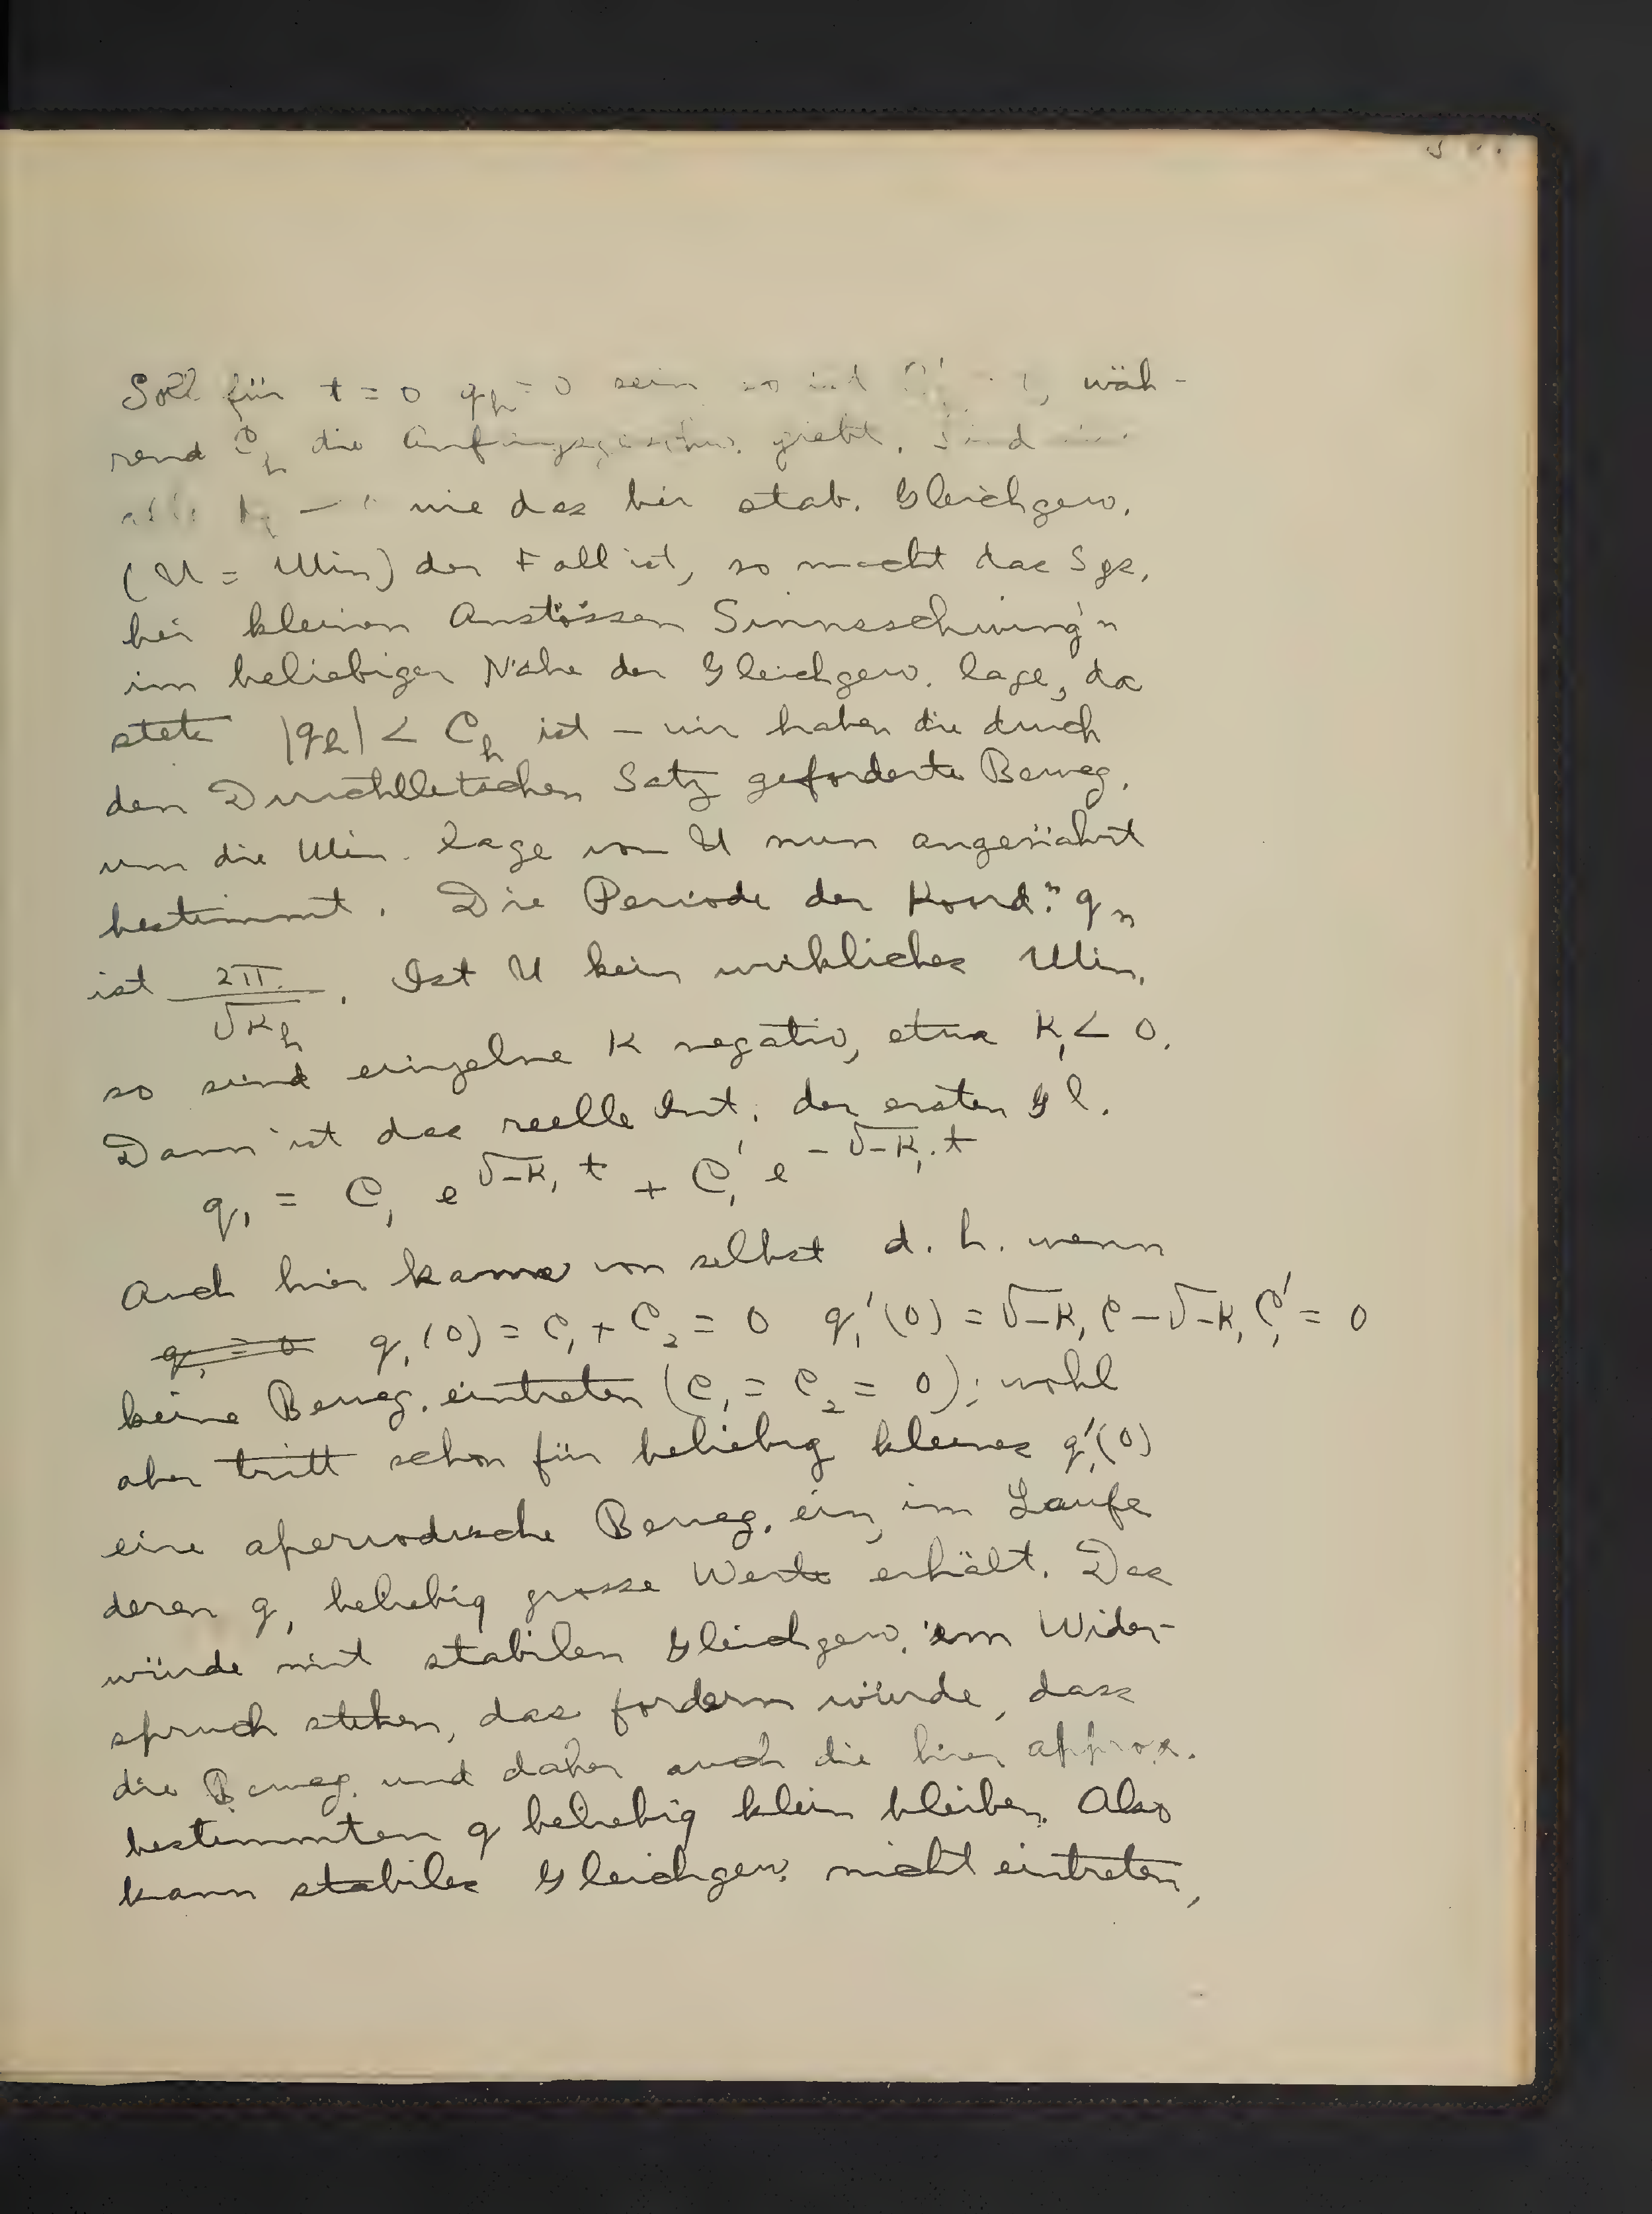 Soll für t = 0 q_h = 0 sein so ist wäh-
rend C_h die giebt.
wie das bei stab. Gleichgew.
(U = Min) der Fall ist, so macht das Sys.
bei kleinen Anstössen Sinusschwing'n
in beliebiger Nähe der Gleichgew. lage, da
stets |q_h| < C_h ist – wir haben die durch
den Dirichletschen Satz geforderte Beweg.
um die Min. lage von U nun angenährt
bestimmt. Die Periode der Koord.n q_h
ist 2π/√K_h. Ist U kein wirkliches Min.
so sind einzelne K negativ, etwa K₁ < 0.
Dann ist das reelle Int. der ersten Gl.
q₁ = C₁ e^{√-K₁ t} + C₁' e^{-√-K₁.t}
Auch hier kann von selbst d. h. wenn
q₁ = 0 q₁(0) = C₁ + C₂ = 0 q₁'(0) = √-K₁ C - √-K₁ C₁' = 0
keine Beweg. eintreten (C₁ = C₂ = 0); wohl
aber tritt schon für beliebig kleines q₁'(0)
eine aperiodische Beweg. ein, im Laufe
deren q₁ beliebig grosse Werte erhält. Das
würde mit stabilen Gleichgew. im Wider-
spruch stehen, das fordern würde, dass
die Beweg. und daher auch die hier approx.
bestimmten q beliebig klein bleiben. Also
kann stabiles Gleichgew. nicht eintreten,